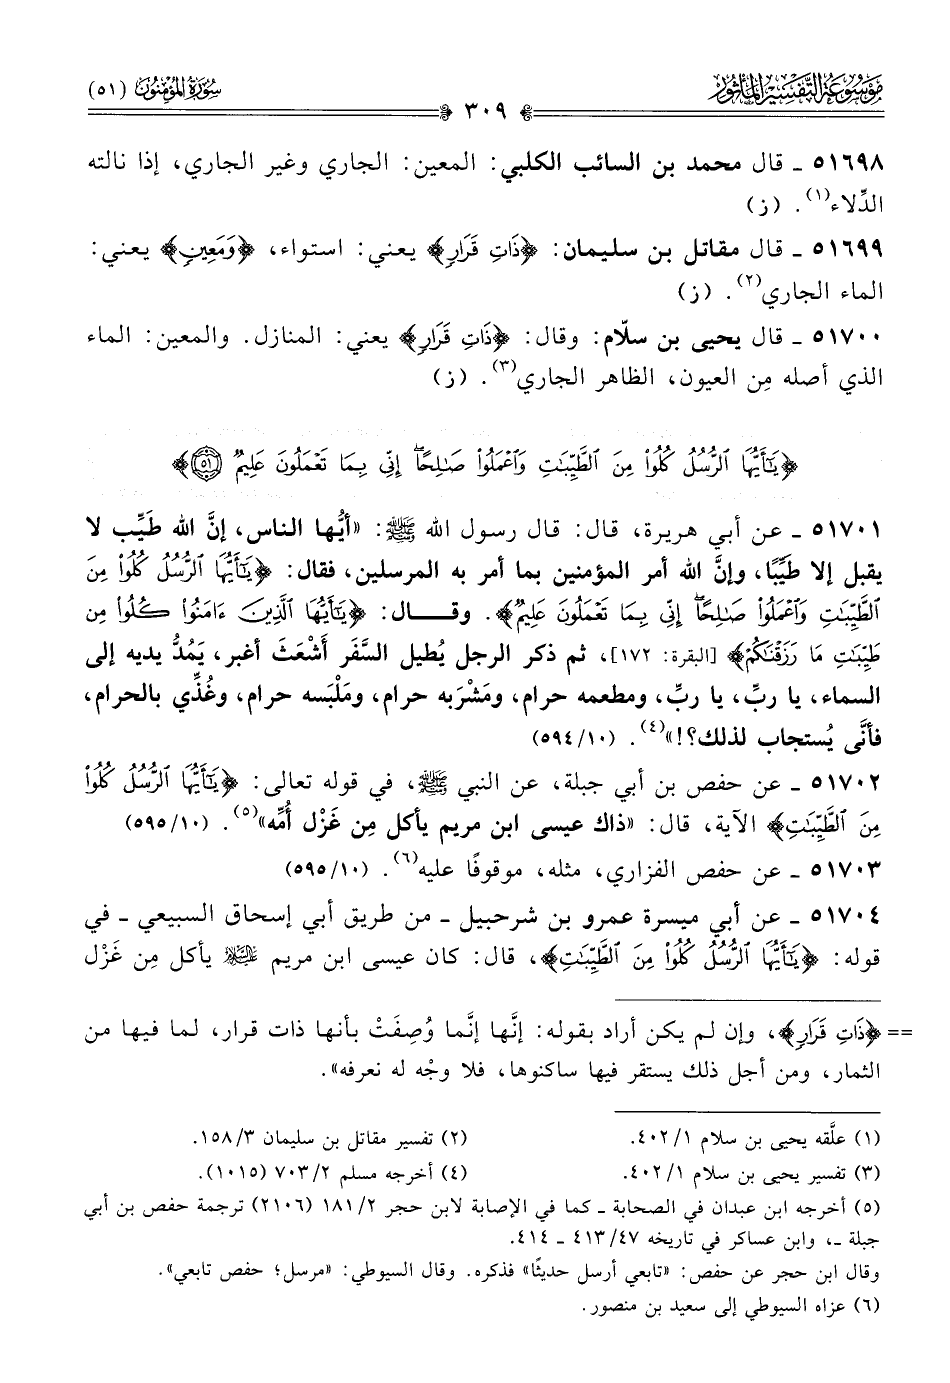 مَوْسُوعَة التَّفْسِير المَأْثُور
سُورَةُ المُؤْمِنُونَ (٥١)
٣٠٩
٥١٦٩٨ ـ قال محمد بن السائب الكلبي: المعين: الجاري وغير الجاري، إذا نالته
الدِّلاء(١). (ز)
٥١٦٩٩ ـ قال مقاتل بن سليمان: ﴿ذَاتِ قَرَارٍ﴾ يعني: استواء، ﴿وَمَعِينٍ﴾ يعني:
الماء الجاري(٢). (ز)
٥١٧٠٠ ـ قال يحيى بن سلّام: وقال: ﴿ذَاتِ قَرَارٍ﴾ يعني: المنازل. والمعين: الماء
الذي أصله مِن العيون، الظاهر الجاري(٣). (ز)
﴿يَٰٓأَيُّهَا ٱلرُّسُلُ كُلُوا۟ مِنَ ٱلطَّيِّبَٰتِ وَٱعْمَلُوا۟ صَٰلِحًا ۖ إِنِّى بِمَا تَعْمَلُونَ عَلِيمٌ ٥١﴾
٥١٧٠١ ـ عن أبي هريرة، قال: قال رسول الله ﷺ: «أيُّها الناس، إنَّ الله طَيِّب لا
يقبل إلا طيِّبًا، وإنَّ الله أمر المؤمنين بما أمر به المرسلين، فقال: ﴿يَٰٓأَيُّهَا ٱلرُّسُلُ كُلُوا۟ مِنَ
ٱلطَّيِّبَٰتِ وَٱعْمَلُوا۟ صَٰلِحًا ۖ إِنِّى بِمَا تَعْمَلُونَ عَلِيمٌ﴾. وقـــال: ﴿يَٰٓأَيُّهَا ٱلَّذِينَ ءَامَنُوا۟ كُلُوا۟ مِن
طَيِّبَٰتِ مَا رَزَقْنَٰكُمْ﴾ [البقرة: ١٧٢]، ثم ذكر الرجل يُطيل السَّفَر أَشْعَثَ أغبر، يَمُدُّ يديه إلى
السماء، يا ربِّ، يا ربِّ، ومطعمه حرام، ومَشْرَبه حرام، ومَلْبَسه حرام، وغُذِّي بالحرام،
فأنَّى يُستجاب لذلك؟!»(٤). (٥٩٤/١٠)
٥١٧٠٢ ـ عن حفص بن أبي جبلة، عن النبي ﷺ، في قوله تعالى: ﴿يَٰٓأَيُّهَا ٱلرُّسُلُ كُلُوا۟
مِنَ ٱلطَّيِّبَٰتِ﴾ الآية، قال: «ذاك عيسى ابن مريم يأكل مِن غَزْل أُمِّه»(٥). (٥٩٥/١٠)
٥١٧٠٣ ـ عن حفص الفزاري، مثله، موقوفًا عليه(٦). (٥٩٥/١٠)
٥١٧٠٤ ـ عن أبي ميسرة عمرو بن شرحبيل ـ من طريق أبي إسحاق السبيعي ـ في
قوله: ﴿يَٰٓأَيُّهَا ٱلرُّسُلُ كُلُوا۟ مِنَ ٱلطَّيِّبَٰتِ﴾، قال: كان عيسى ابن مريم عليه السلام يأكل مِن غَزْل
== ﴿ذَاتِ قَرَارٍ﴾، وإن لم يكن أراد بقوله: إنَّها إنَّما وُصِفَتْ بأنها ذات قرار، لما فيها من
الثمار، ومن أجل ذلك يستقر فيها ساكنوها، فلا وجْه له نعرفه».
(١) علَّقه يحيى بن سلام ٤٠٢/١. (٢) تفسير مقاتل بن سليمان ١٥٨/٣.
(٣) تفسير يحيى بن سلام ٤٠٢/١. (٤) أخرجه مسلم ٧٠٣/٢ (١٠١٥).
(٥) أخرجه ابن عبدان في الصحابة ـ كما في الإصابة لابن حجر ١٨١/٢ (٢١٠٦) ترجمة حفص بن أبي
جبلة ـ، وابن عساكر في تاريخه ٤١٣/٤٧ ـ ٤١٤.
وقال ابن حجر عن حفص: «تابعي أرسل حديثًا» فذكره. وقال السيوطي: «مرسل؛ حفص تابعي».
(٦) عزاه السيوطي إلى سعيد بن منصور.